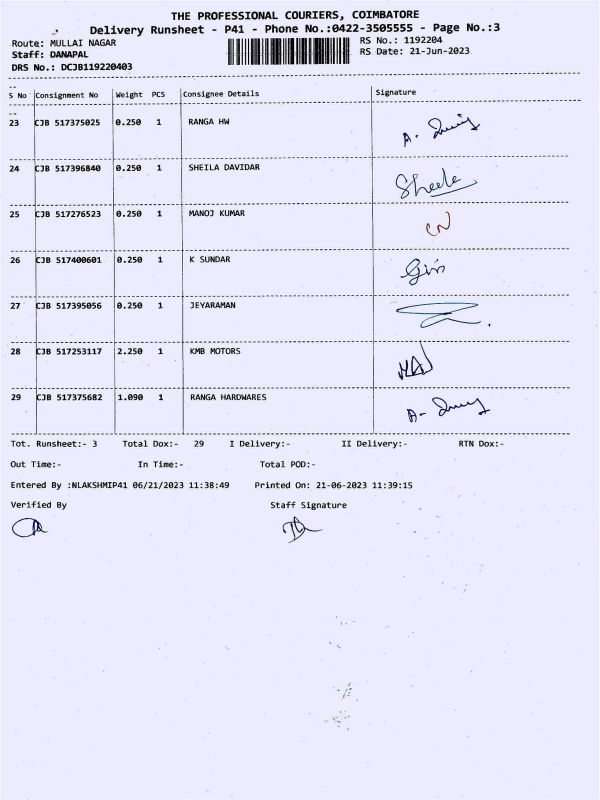 THE PROFESSIONAL COURIERS, COIMBATORE
Delivery Runsheet - P41 - Phone No.:0422-3505555 - Page No.:3
Route: MULLAI NAGAR RS No.: 1192204
Staff: DANAPAL RS Date: 21-Jun-2023
DRS No.: DCJB119220403
S No Consignment No Weight PCS Consignee Details Signature
23 CJB 517375025 0.250 1 RANGA HW
24 CJB 517396840 0.250 1 SHEILA DAVIDAR Sheela
25 CJB 517276523 0.250 1 MANOJ KUMAR
26 CJB 517400601 0.250 1 K SUNDAR
27 CJB 517395056 0.250 1 JEYARAMAN
28 CJB 517253117 2.250 1 KMB MOTORS
29 CJB 517375682 1.090 1 RANGA HARDWARES
Tot. Runsheet:- 3 Total Dox:- 29 I Delivery:- II Delivery:- RTN Dox:-
Out Time:- In Time:- Total POD:-
Entered By :NLAKSHMIP41 06/21/2023 11:38:49 Printed On: 21-06-2023 11:39:15
Verified By Staff Signature